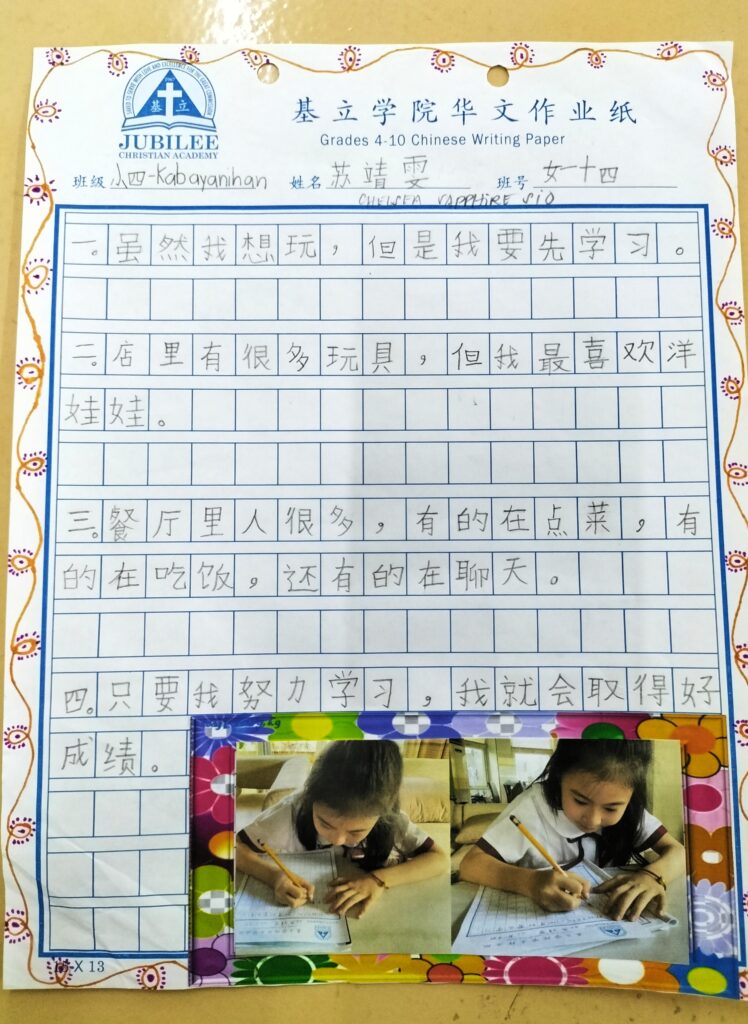 SAVED TO SERVE WITH LOVE AND EXCELLENCE FOR THE GREAT COMMISSION
基立
JUBILEE
CHRISTIAN ACADEMY
基立学院华文作业纸
Grades 4-10 Chinese Writing Paper
班级 小四-Kabayanihan 姓名 苏靖雯 班号 女一十四
CHELSEA SAPPHIRE SIO
一。虽然我想玩，但是我要先学习。
二。店里有很多玩具，但我最喜欢洋
娃娃。
三。餐厅里人很多，有的在点菜，有
的在吃饭，还有的在聊天。
四。只要我努力学习，我就会取得好
成绩。
15 X 13